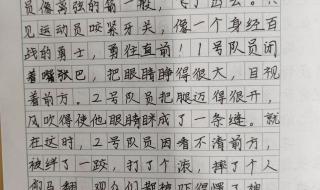 员像离弦的箭一般，飞了出去。只
见运动员咬紧牙关，像一个身经百
战的勇士，勇往直前！1号队员闭
着嘴巴，把眼睛睁得很大，目视
着前方。2号队员把腿迈得很开，
风吹得使他眼睛眯成了一条缝。就
在这时，2号队员因看不清前方，
被绊了一跤，打了个滚，摔了个人
仰马翻，观众们都被吓得愣了